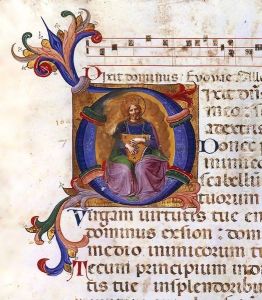 Dixit dominus: Evovae
Dixit dn̄
a dextris
Donec po
inimico
scabellū
tuorum
Virgam virtutis tue en
dominus exsion: do
medio inimicorum t
Tecum principium in
tis tue insplendoribus